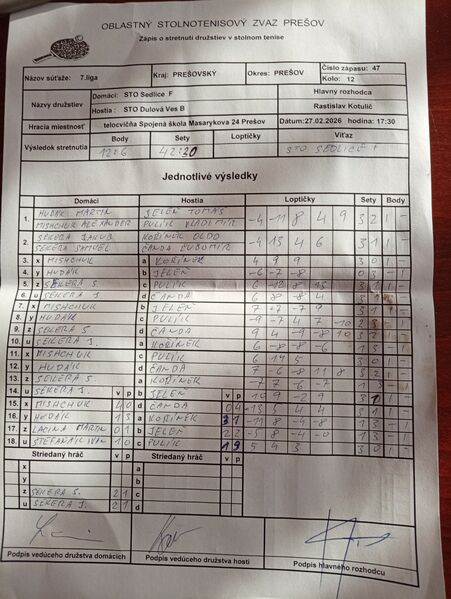 OBLASTNÝ STOLNOTENISOVÝ ZVÄZ PREŠOV
Zápis o stretnutí družstiev v stolnom tenise
Názov súťaže: 7.liga
Kraj: PREŠOVSKÝ
Okres: PREŠOV
Číslo zápasu: 47
Kolo: 12
Názvy družstiev
Domáci: STO Sedlice F
Hostia : STO Dulová Ves B
Hlavný rozhodca
Rastislav Kotulič
Hracia miestnosť
telocvičňa Spojená škola Masarykova 24 Prešov
Dátum:27.02.2026 hodina: 17:30
Výsledok stretnutia
Body
Sety
Loptičky
Víťaz
12:6
42:30
STO SEDLICE F
Jednotlivé výsledky
Domáci Hostia Loptičky Sety Body
1. HUDÁK MARTIN JELEŇ TOMÁŠ
MISHCHUK ALEXANDER PULÍK VLADIMÍR -4 -11 8 4 9 3 2 1 -
2. SEKERA JAKUB KOŘÍNEK OLDO
SEKERA SAMUEL ČANDA ĽUBOMÍR 4 6 3 1 1 -
3. x MISHCHUK a KOŘÍNEK 4 9 9 3 0 1 -
4. y HUDÁK b JELEŇ -6 -7 -8 0 3 - 1
5. z SEKERA S. c PULÍK
6. u SEKERA J. d ČANDA 6 -8 -8 4
7. x MISHCHUK b JELEŇ 7 -7 -7 9 3 1 1 -
8. y HUDÁK c PULÍK -9 -7 4 7 -10 2 3 - 1
9. z SEKERA S. d ČANDA 9 4 -9 -8 10 3 2 1 -
10. u SEKERA J. a KOŘÍNEK 6 -8 -8 -6 1 3 - 1
11. x MISHCHUK c PULÍK 3 0 1 -
12. y HUDÁK d ČANDA 7 -6 -8 11 8
13. z SEKERA S. a KOŘÍNEK -7 7 6 7
14. u SEKERA J. v p b JELEŇ v p 10 9 -2 9 3 1 1 -
15. x MISHCHUK 4 0 d ČANDA 0 4 5 4 4 3 1 1 -
16. y HUDÁK 1 3 a KOŘÍNEK 3 1 -11 8 -4 -8 1 3 - 1
17. z LACINA MARTIN 0 1 b JELEŇ 2 2
18. u ŠTEFANIK IVAL 1 0 c PULÍK 1 3 5 4 3 3 0 1 -
Striedaný hráč v p Striedaný hráč v p
x a
y b
z SEKERA S. 2 1 c
u SEKERA J. 2 1 d
Podpis vedúceho družstva domácich
Podpis vedúceho družstva hostia
Podpis hlavného rozhodcu